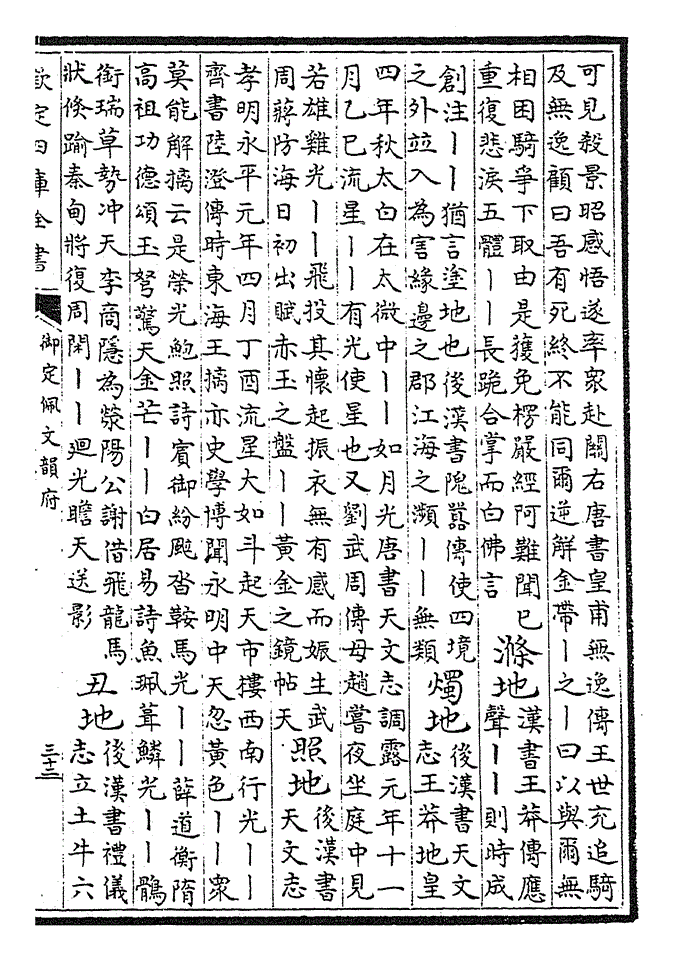 可見殺景昭感悟遂率衆赴闕右唐書皇甫無逸傳王世充追騎
及無逸顧曰吾有死終不能同爾逆解金帶丨之丨曰以與爾無
相困騎爭下取由是獲免楞嚴經阿難聞已
重復悲淚五體丨丨長跪合掌而白佛言
滌地
漢書王莽傳應
聲丨丨則時成
創注丨丨猶言塗地也後漢書隗囂傳使四境
之外並入為害緣邊之郡江海之瀕丨丨無類
燭地
後漢書天文
志王莽地皇
四年秋太白在太微中丨丨如月光唐書天文志調露元年十一
月乙巳流星丨丨有光使星也又劉武周傳母趙嘗夜坐庭中見
若雄雞光丨丨飛投其懷起振衣無有感而娠生武
周蔣防海日初出賦赤玉之盤丨丨黃金之鏡帖天
照地
後漢書
天文志
孝明永平元年四月丁酉流星大如斗起天市樓西南行光丨丨
齊書陸澄傳時東海王摛亦史學博聞永明中天忽黃色丨丨衆
莫能解摛云是榮光鮑照詩賓御紛颯沓鞍馬光丨丨薛道衡隋
高祖功德頌玉弩驚天金芒丨丨白居易詩魚珮葺鱗光丨丨鶻
銜瑞草勢冲天李商隱為滎陽公謝借飛龍馬
狀倐踰秦甸將復周閑丨丨迴光瞻天送影
丑地
後漢書禮儀
志立土牛六
欽定四庫全書
御定佩文韻府
三十三